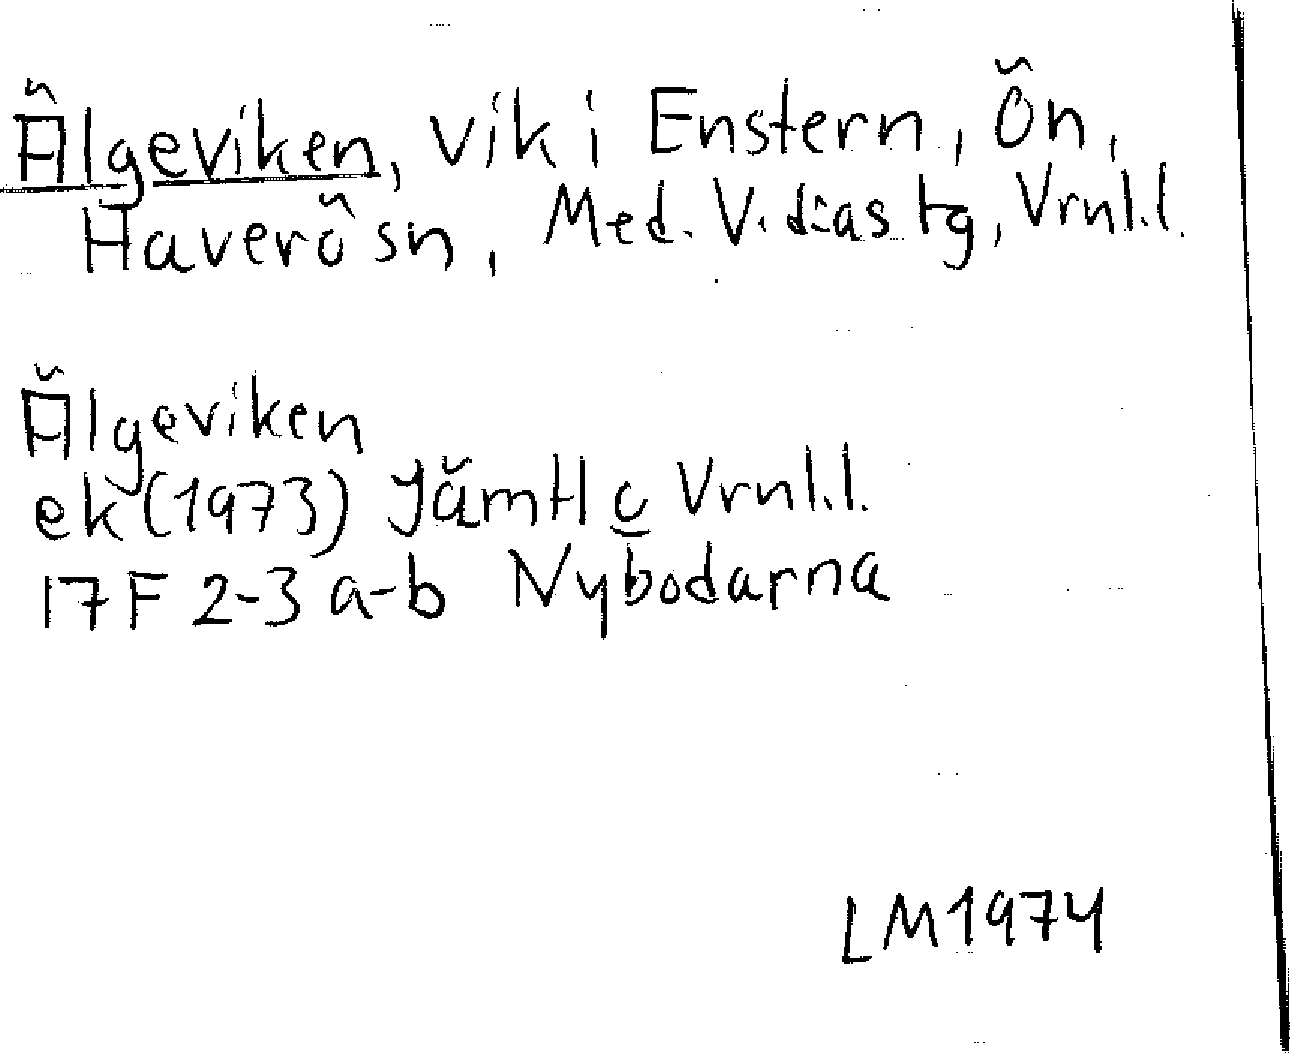 Älgeviken, vik i Enstern, Ön,
Haverösn, Med. V. d:as tg, Vrml.l.
Älgeviken
ek (1973) Jämtl c Vrnl.l.
17F 2-3 a-b Nybodarna
LM1974